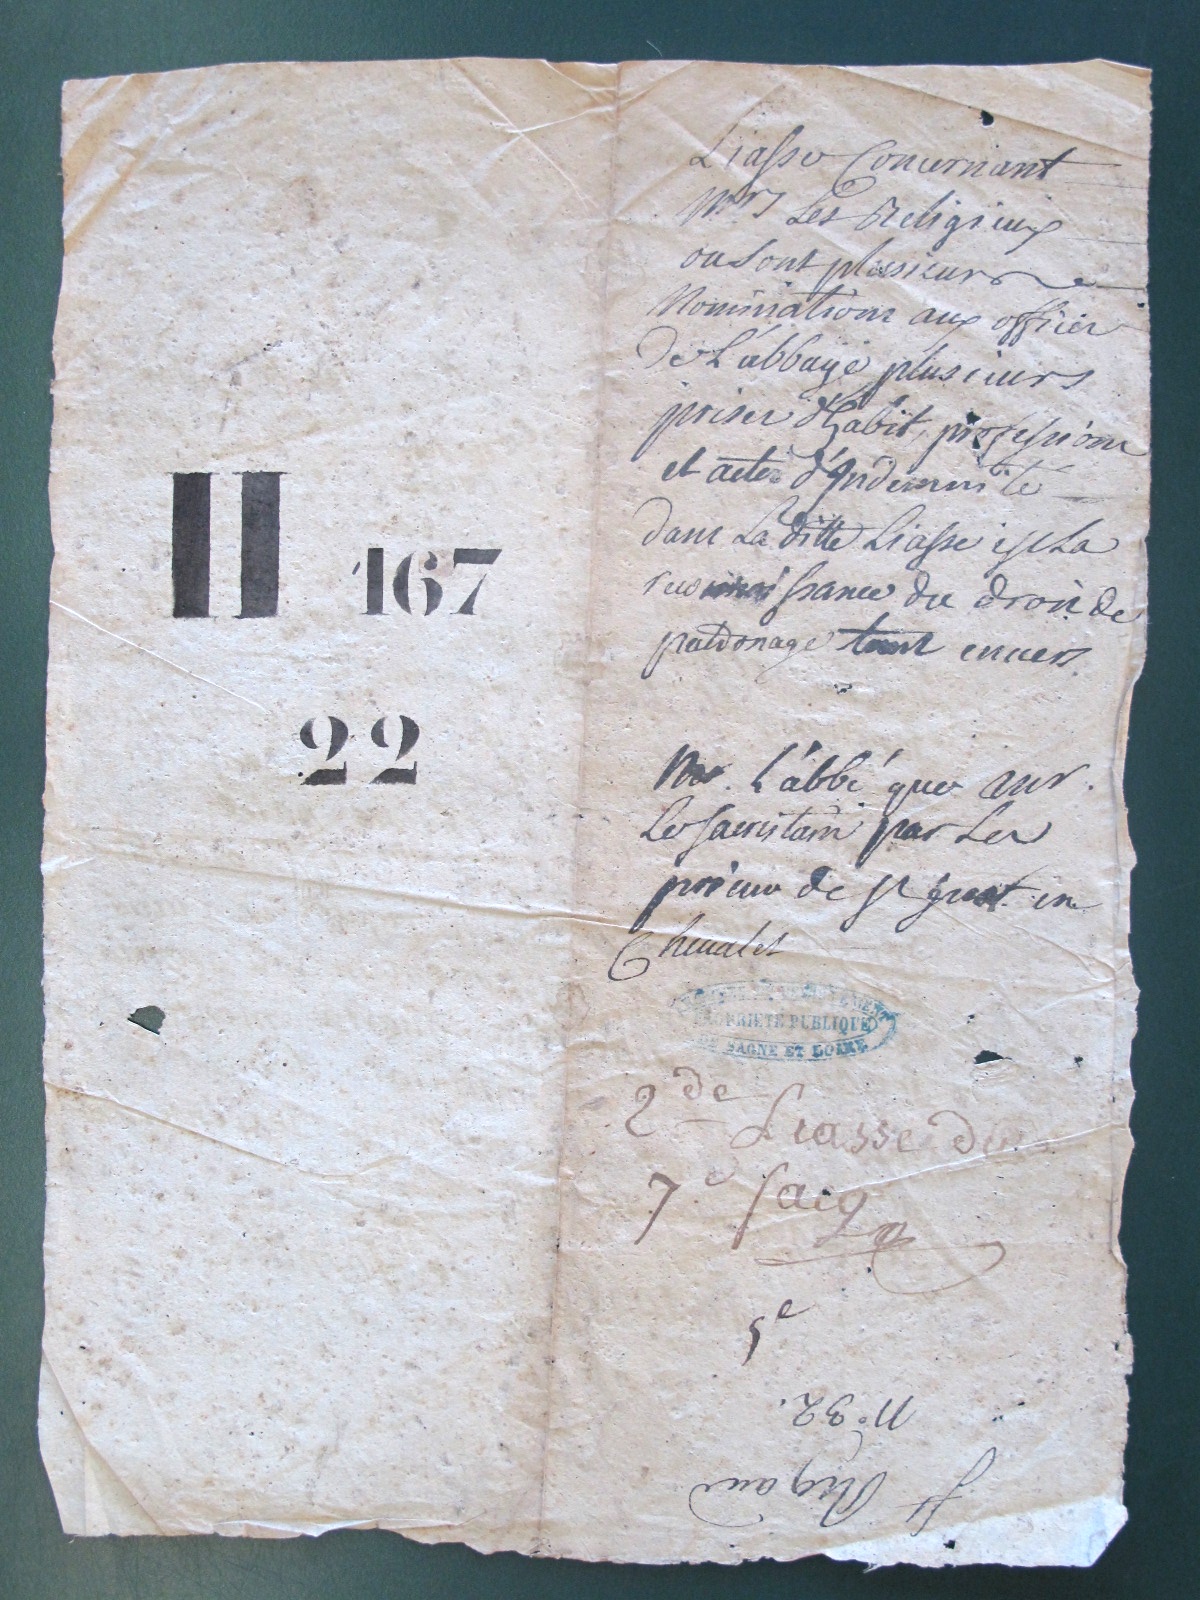 H 167
22
Liasse Concernant
Mrs Les Religieux
ou sont plusieurs
Nominations aux offices
De L'abbaye plusieurs
prises d'habit, professions
et actes d'Indemnité
dans La ditte Liasse est La
reconnoissance du droit de
patronage tant envers
Mr. L'abbé que sur
Le sacristain par Les
prieur de St en
Chevalet
PROPRIETE PUBLIQUE
DE SAONE ET LOIRE
2de Liasse du
7e sacq
5e
No 32.
St Rigaud